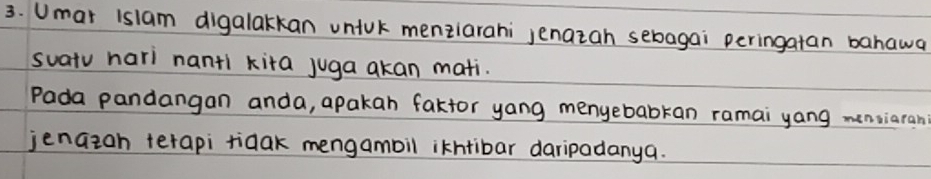 3. Umat Islam digalakkan untuk menziarahi jenazah sebagai peringatan bahawa
suatu hari nanti kita juga akan mati.
Pada pandangan anda, apakah faktor yang menyebabkan ramai yang menziarahi
jenazah tetapi tidak mengambil ikhtibar daripadanya.